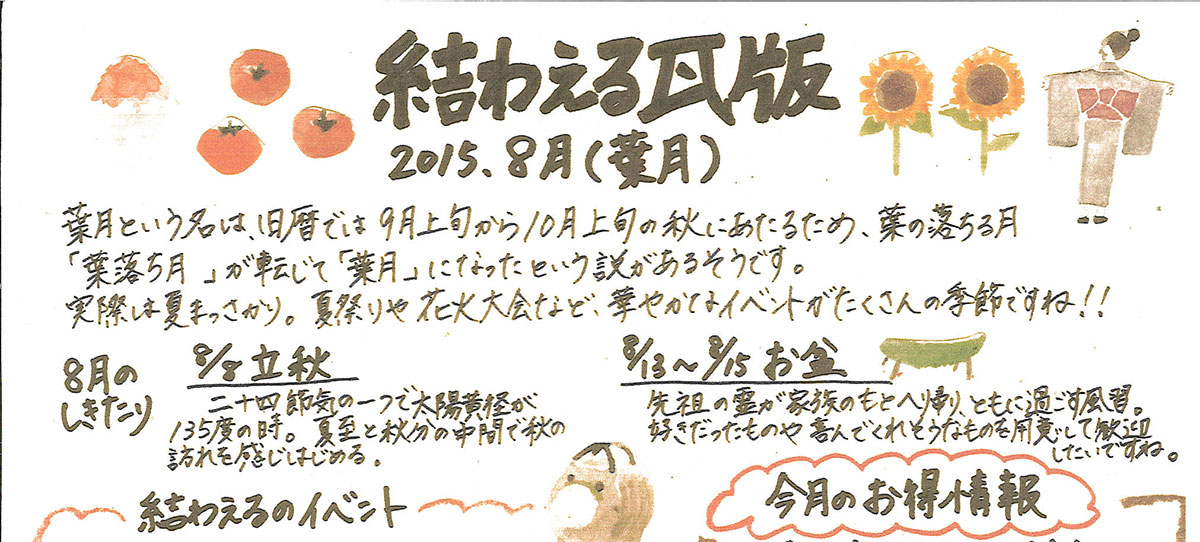 結わえる瓦版
2015.8月(葉月)
葉月という名は、旧暦では9月上旬から10月上旬の秋にあたるため、葉の落ちる月
「葉落ち月」が転じて「葉月」になったという説があるそうです。
実際は夏まっさかり。夏祭りや花火大会など、華やかなイベントがたくさんの季節ですね!!
8月の
しきたり
8/8 立秋
二十四節気の一つで太陽黄経が
135度の時。夏至と秋分の中間で秋の
訪れを感じはじめる。
8/13〜8/15 お盆
先祖の霊が家族のもとへり帰り、ともに過ごす風習。
好きだったものや喜んでくれそうなものを用意して歓迎
したいですね。
結わえるのイベント
今月のお得情報